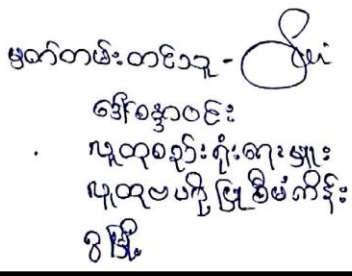 မှတ်တမ်းတင်သူ -
ဒေါ်စန္ဒာဝင်း
လူထုစည်းရုံးရေးမှူး
လူထုဗဟိုပြုစီမံကိန်း
ငွေမြို့